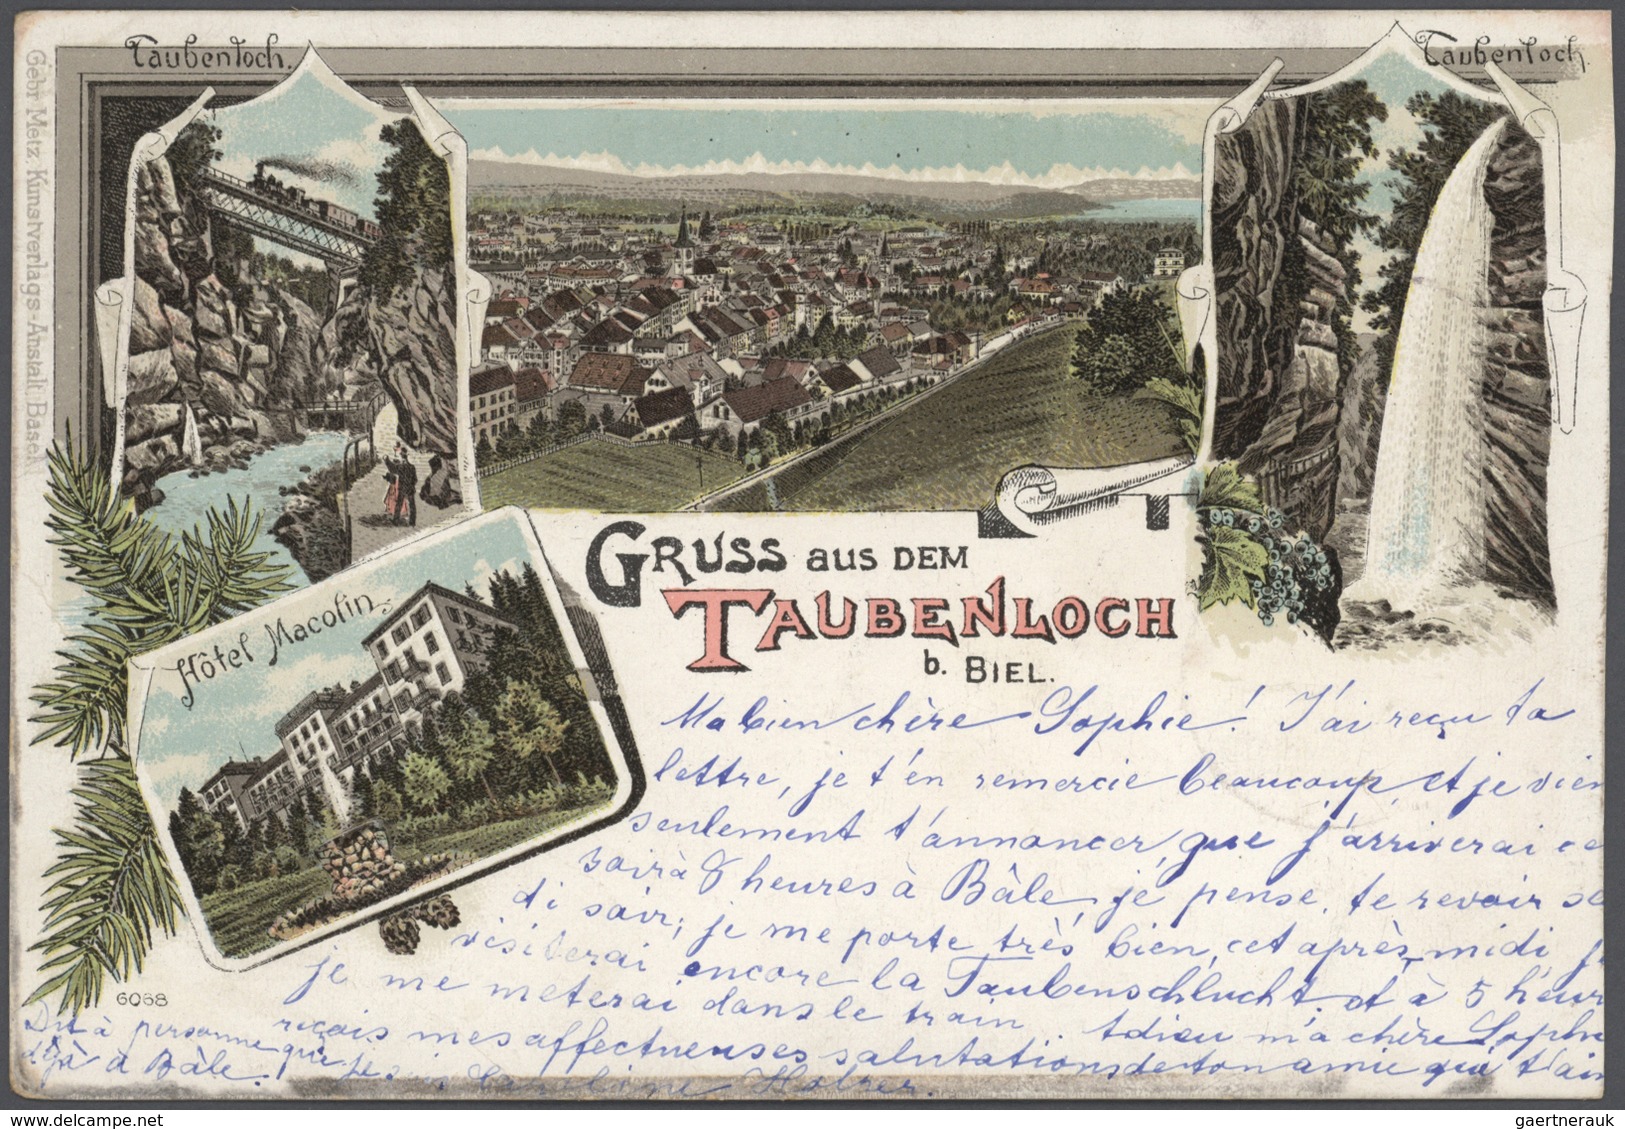 Taubenloch.
Taubenloch.
Gebr. Metz, Kunstverlags-Anstalt Basel.
Hôtel Macolin
GRUSS aus DEM
TAUBENLOCH
b. BIEL.
Ma bien chère Sophie! J'ai reçu ta
lettre, je t'en remercie beaucoup, et je vien
seulement t'annoncer, que j'arriverai ce
soir à 8 heures à Bâle, je pense te revoir
di soir; je me porte très bien, cet après-midi j
visiterai encore la Taubenschlucht et à 5 heur
je me meterai dans le train. Adieu m'a chère Sophie
reçois mes affectueuses salutations de ton amie qui t'aim
Dit à personne que je suis
déjà à Bâle.
Holzer.
6068
gaertnerauk @ delcampe.net